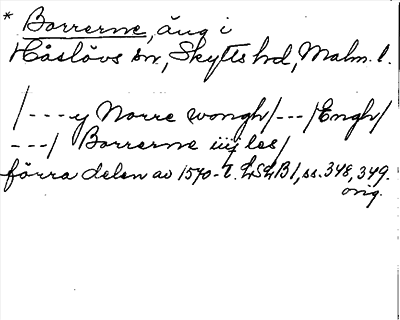 * Borrerne, äng i
Håslövs sn, Skytts hd, Malm. l.
/---y Norre wongh/---/Engh/
---/ Borrerne iiij les/
förra delen av 1570-t. LSLB1, ss. 348, 349.
orig.